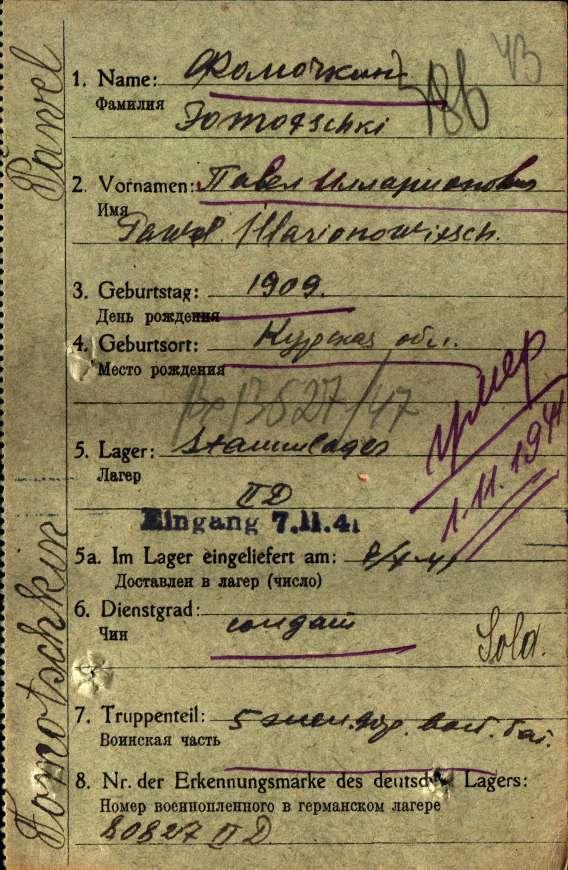 Pawel
Fomotschkin
43
186
1. Name: Фомочкин
Фамилия
Fomotschki
2. Vornamen: Павел Илларионович
Имя
Pawel. Illarionowitsch.
3. Geburtstag: 1909.
День рождения
4. Geburtsort: Курская обл.
Место рождения
13827/47
умер
1.11.1941
5. Lager: Stammlager
Лагер
II D
Eingang 7.11.41
5a. Im Lager eingeliefert am:
Доставлен в лагер (число)
6. Dienstgrad: солдат
Чин
Sold.
7. Truppenteil: 5
Воинская часть
8. Nr. der Erkennungsmarke des deutsch Lagers:
Номер военнопленного в германском лагере
80827 II D